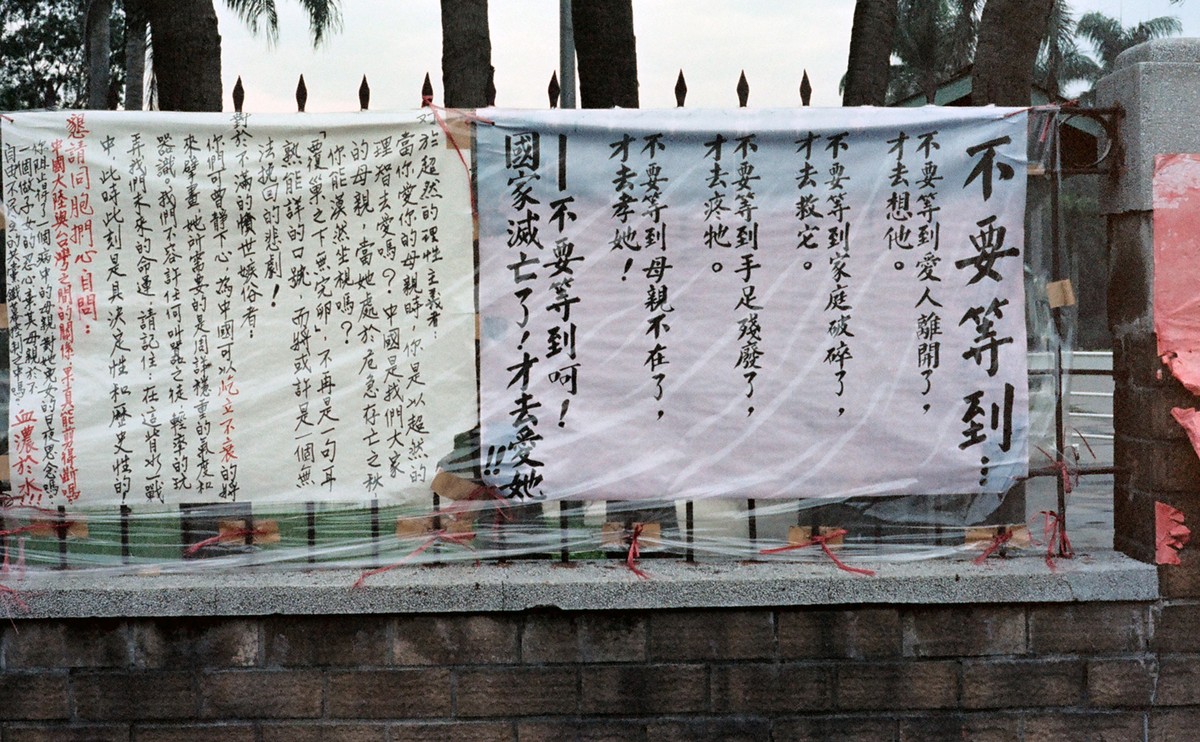 不要等到…
不要等到愛人離開了，
才去想他。
不要等到家庭破碎了，
才去救它。
不要等到手足殘廢了，
才去疼牠。
不要等到母親不在了，
才去孝她！
——不要等到呵！
國家滅亡了！才去愛她!!
於超然的理性主義者：
當你愛你的母親時，你是以超然的
理智去愛嗎？中國是我們大家
的母親，當她處於危急存亡之秋，
你能漠然坐視嗎？
「覆巢之下無完卵」，不再是一句耳
熟能詳的口號，而將或許是一個無
法挽回的悲劇！
對於不滿的憤世嫉俗者：
你們可曾靜下心，為中國可以屹立不衰的將
來擘畫，她所需要的是周詳穩重的氣度和
器識。我們不容許任何叫囂之徒，輕率的玩
弄我們未來的命運，請記住，在這背水一戰
中，此時此刻是具決定性和歷史性的
懇請同胞捫心自問：
中國大陸與台灣之間的關係果真能剪得斷嗎
你阻得了一個病中的母親對她兒女的日夜思念嗎
一個做子女的忍心棄其母親於不
血濃於水!!